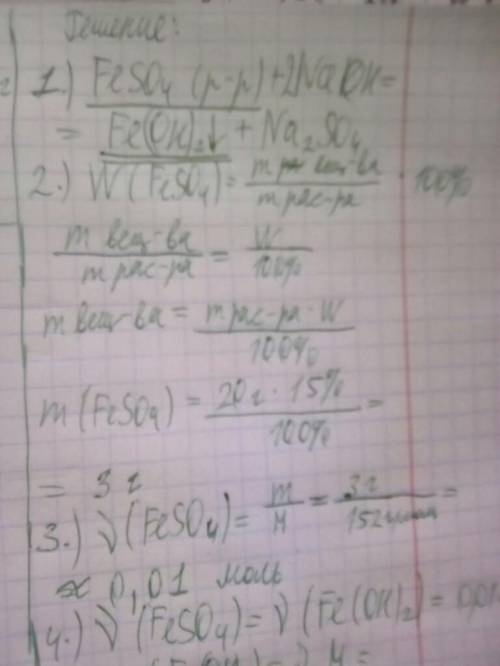 Решение:
1.) FeSO4 (р-р) + 2NaOH =
= Fe(OH)2↓ + Na2SO4
2.) W (FeSO4) = m вещ-ва / m рас-ра · 100%
m вещ-ва / m рас-ра = W / 100%
m вещ-ва = m рас-ра · W / 100%
m (FeSO4) = 20 г · 15% / 100% =
= 3 г
3.) ν (FeSO4) = m / M = 3 г / 152 г/моль =
≈ 0,01 моль
4.) ν (FeSO4) = ν (Fe(OH)2) =